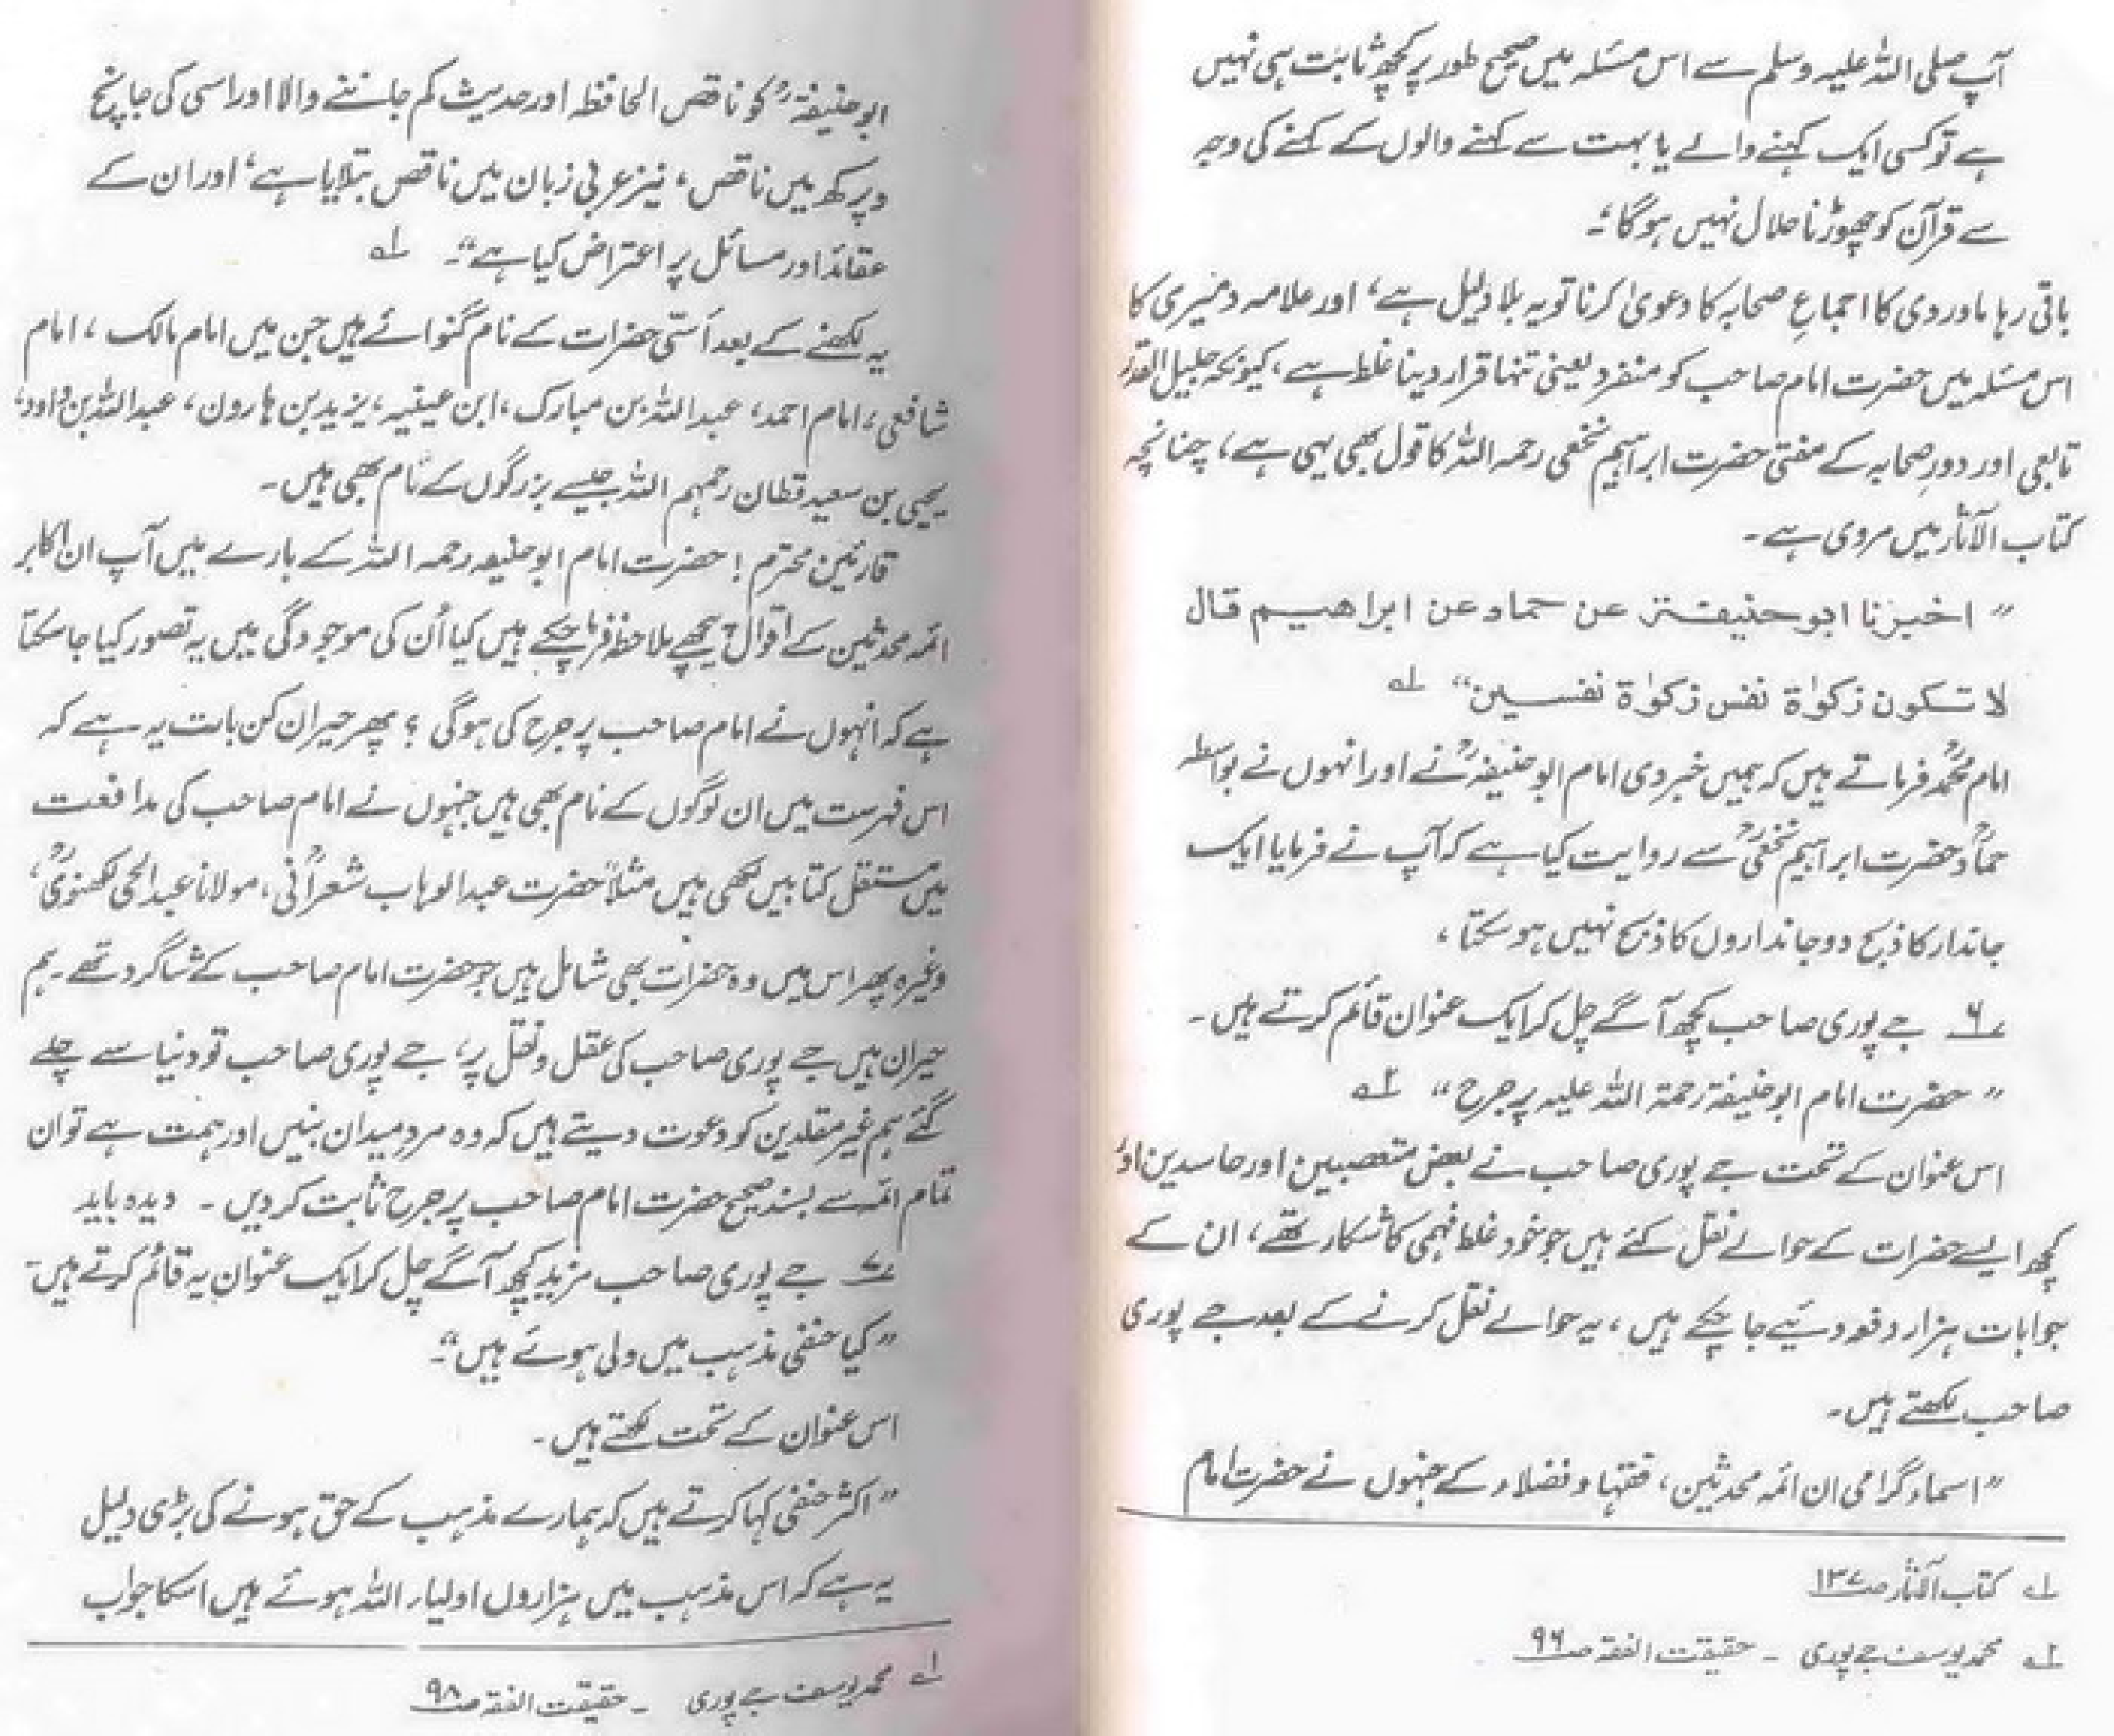 آپ صلی اللہ علیہ وسلم سے اس مسئلہ میں صحیح طور پر کچھ ثابت ہی نہیں
ہے تو کسی ایک کہنے والے یا بہت سے کہنے والوں کے کہنے کی وجہ
سے قرآن کو چھوڑنا حلال نہیں ہوگا"۔
باقی رہا ماوردی کا اجماعِ صحابہ کا دعویٰ کرنا تو یہ بلا دلیل ہے، اور علامہ دمیری کا
اس مسئلہ میں حضرت امام صاحب کو منفرد یعنی تنہا قرار دینا غلط ہے، کیونکہ جلیل القدر
تابعی اور دورِ صحابہ کے مفتی حضرت ابراہیم نخعی رحمہ اللہ کا قول بھی یہی ہے، چنانچہ
کتاب الآثار میں مروی ہے۔
" اخبرنا ابو حنیفة عن حماد عن ابراھیم قال
لا تکون زکوٰۃ نفس زکوٰۃ نفسین" ۱؎
امام محمدؒ فرماتے ہیں کہ ہمیں خبر دی امام ابوحنیفہؒ نے اور انہوں نے بواسطہ
حمادؒ حضرت ابراہیم نخعیؒ سے روایت کیا ہے کہ آپ نے فرمایا ایک
جاندار کا ذبح دو جانداروں کا ذبح نہیں ہو سکتا،
۶؎ جے پوری صاحب کچھ آگے چل کر ایک عنوان قائم کرتے ہیں۔
" حضرت امام ابوحنیفۃ رحمۃ اللہ علیہ پر جرح" ۲؎
اس عنوان کے تحت جے پوری صاحب نے بعض متعصبین اور حاسدین اور
کچھ ایسے حضرات کے حوالے نقل کئے ہیں جو خود غلط فہمی کا شکار تھے، ان کے
جوابات ہزار دفعہ دئیے جا چکے ہیں، یہ حوالے نقل کرنے کے بعد جے پوری
صاحب لکھتے ہیں۔
"اسماء گرامی ان ائمہ محدثین، فقہا و فضلاء کے جنہوں نے حضرت امام
۱؎ کتاب الآثار صـ۱۳۷
۲؎ محمد یوسف جے پوری ۔ حقیقت الفقہ صـ۹۶
ابوحنیفۃؒ کو ناقص الحافظہ اور حدیث کم جاننے والا اور اسی کی جانچ
و پرکھ میں ناقص، نیز عربی زبان میں ناقص بتلایا ہے، اور ان کے
عقائد اور مسائل پر اعتراض کیا ہے"۔ ۱؎
یہ لکھنے کے بعد اَسّی حضرات کے نام گنوائے ہیں جن میں امام مالک، امام
شافعی، امام احمد، عبداللہ بن مبارک، ابن عیینہ، یزید بن ہارون، عبداللہ بن داود،
یحیی بن سعید قطان رحمہم اللہ جیسے بزرگوں کے نام بھی ہیں۔
قارئین محترم! حضرت امام ابوحنیفہ رحمہ اللہ کے بارے میں آپ ان اکابر
ائمہ محدثین کے اقوال پیچھے ملاحظہ فرما چکے ہیں کیا اُن کی موجودگی میں یہ تصور کیا جا سکتا
ہے کہ انہوں نے امام صاحب پر جرح کی ہوگی؟ پھر حیران کن بات یہ ہے کہ
اس فہرست میں ان لوگوں کے نام بھی ہیں جنہوں نے امام صاحب کی مدافعت
میں مستقل کتابیں لکھی ہیں مثلاً حضرت عبدالوہاب شعرانیؒ، مولانا عبدالحی لکھنویؒ،
وغیرہ پھر اس میں وہ حضرات بھی شامل ہیں جو حضرت امام صاحب کے شاگرد تھے۔ ہم
حیران ہیں جے پوری صاحب کی عقل و نقل پر، جے پوری صاحب تو دنیا سے چلے
گئے ہم غیر مقلدین کو دعوت دیتے ہیں کہ وہ مردِ میدان بنیں اور ہمت ہے تو ان
تمام ائمہ سے بسند صحیح حضرت امام صاحب پر جرح ثابت کر دیں۔ دیدہ باید
۷؎ جے پوری صاحب مزید کچھ آگے چل کر ایک عنوان یہ قائم کرتے ہیں۔
"کیا حنفی مذہب میں ولی ہوئے ہیں"۔
اس عنوان کے تحت لکھتے ہیں۔
"اکثر حنفی کہا کرتے ہیں کہ ہمارے مذہب کے حق ہونے کی بڑی دلیل
یہ ہے کہ اس مذہب میں ہزاروں اولیاء اللہ ہوئے ہیں اسکا جواب
۱؎ محمد یوسف جے پوری ۔ حقیقت الفقہ صـ۹۸